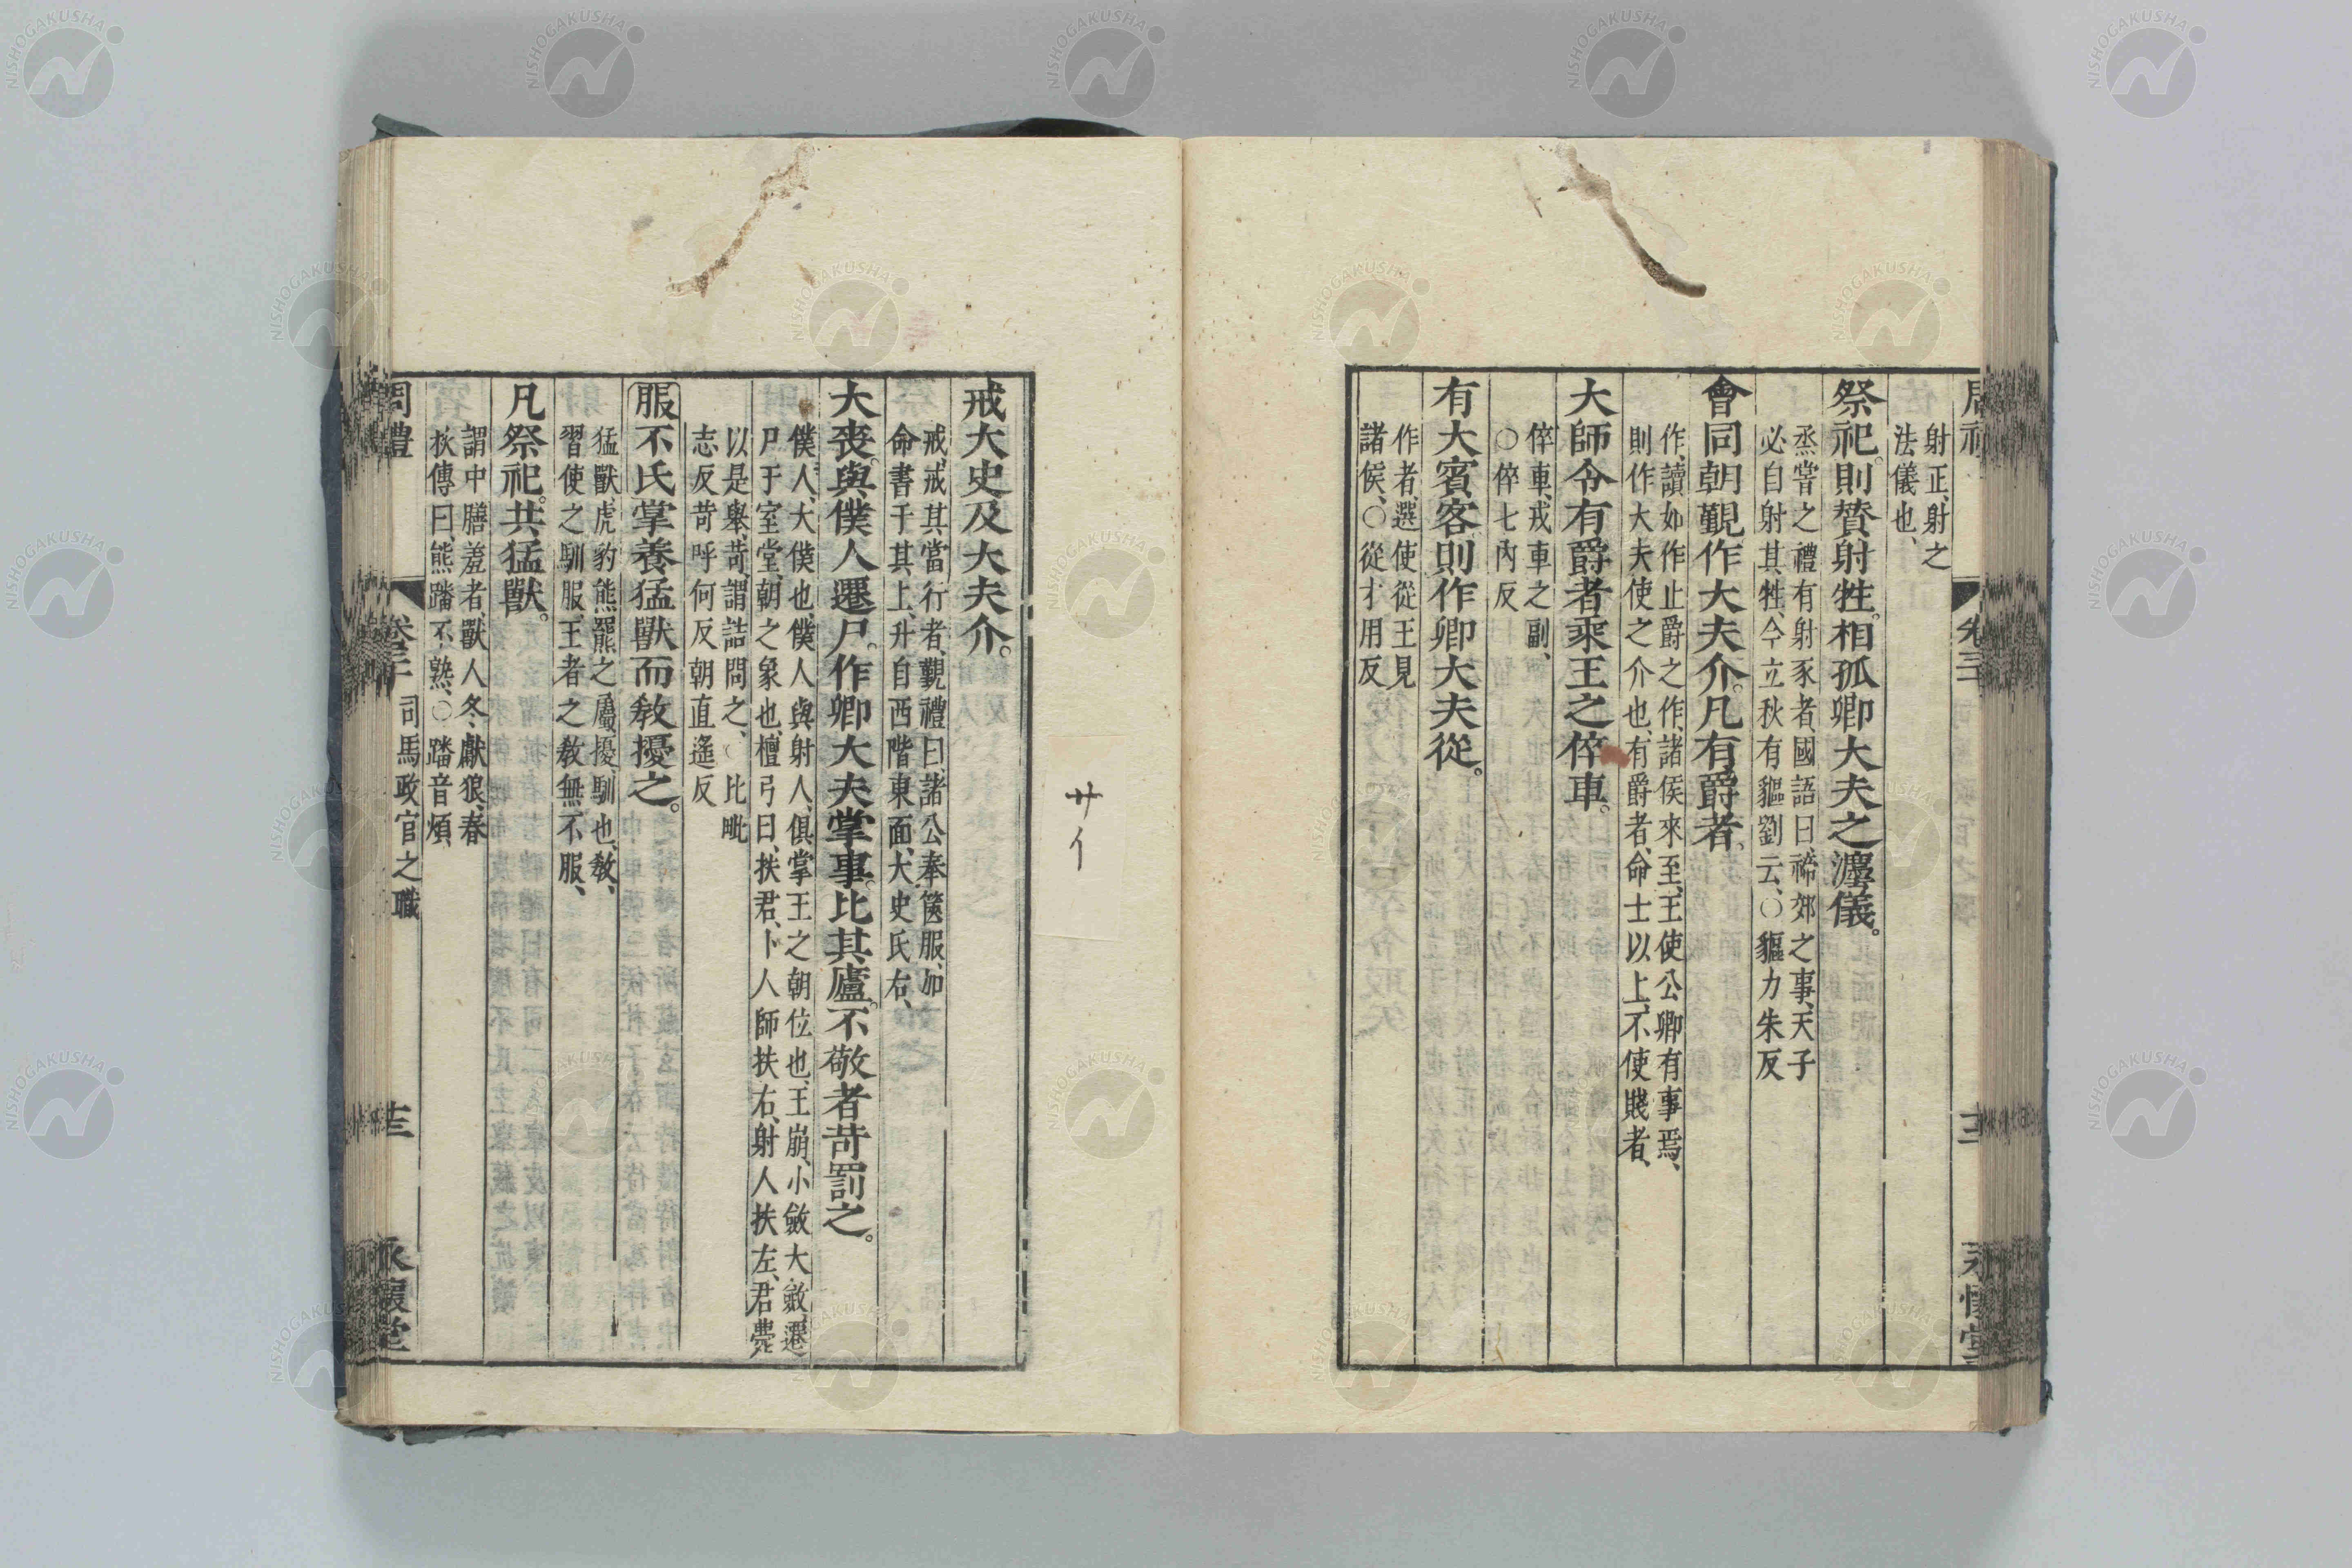 射正、射之
法儀也、
祭祀。則賛射牲。相孤卿大夫之灋儀。
烝嘗之禮有射豕者、國語曰、禘郊之事、天子
必自射其牲、今立秋有貙劉云、〇貙力朱反
會同朝覲作大夫介。凡有爵者。
作、讀如作止爵之作、諸侯來至、王使公卿有事焉、
則作大夫使之介也、有爵者、命士以上、不使賤者、
大師令有爵者乘王之倅車。
倅車、戎車之副、
〇倅七內反
有大賓客則作卿大夫從。
作者、選使從王見
諸侯、〇從才用反
戒大史及大夫介。
戒、戒其當行者、覲禮曰、諸公奉篋服、加
命書于其上、升自西階東面、大史氏右、
大喪。與僕人遷尸。作卿大夫掌事。比其廬。不敬者苛罰之。
僕人、大僕也、僕人與射人、俱掌王之朝位也、王崩、小斂大斂、遷
尸于室堂、朝之象也、檀弓曰、扶君、卜人師扶右、射人扶左、君薨
以是舉、苛、謂詰問之、〇比毗
志反苛呼何反朝直遙反
服不氏掌養猛獸而教擾之。
猛獸、虎豹熊羆之屬、擾、馴也、教、
習使之馴服、王者之教無不服、
凡祭祀。共猛獸。
謂中膳羞者、獸人冬獻狼、春
秋傳曰、熊蹯不熟、〇蹯音煩
周禮 卷三 司馬政官之職 永懷堂
サイ
NISHOGAKUSHA